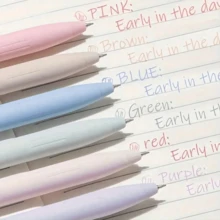 PINK:
Early in the day
Brown:
Early in the da
BLUE:
Early in the
Green:
Early in th
red:
Early in
Purple:
Early